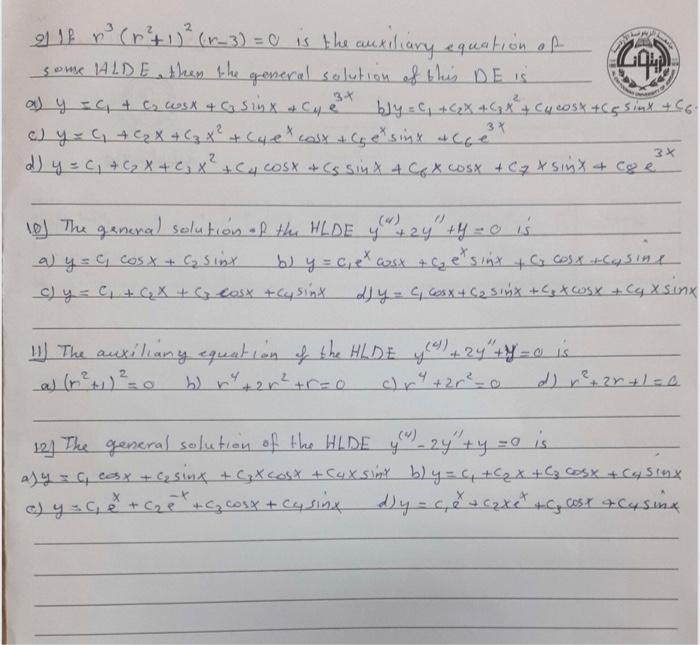 9] If r³(r²+1)²(r-3)=0 is the auxiliary equation of
some HLDE, then the general solution of this DE is
a) y = c₁ + c₂ cosx + c₃ sinx + c₄ e^3x b) y = c₁ + c₂x + c₃x² + c₄ cosx + c₅ sinx + c₆
c) y = c₁ + c₂x + c₃x² + c₄e^x cosx + c₅e^x sinx + c₆e^3x
d) y = c₁ + c₂x + c₃x² + c₄ cosx + c₅ sinx + c₆ x cosx + c₇ x sinx + c₈ e^3x
10] The general solution of the HLDE y⁽⁴⁾+2y''+y=0 is
a) y = c₁ cosx + c₂ sinx b) y = c₁e^x cosx + c₂e^x sinx + c₃ cosx + c₄ sinx
c) y = c₁ + c₂x + c₃ cosx + c₄ sinx d) y = c₁ cosx + c₂ sinx + c₃ x cosx + c₄ x sinx
11] The auxiliary equation of the HLDE y⁽⁴⁾+2y''+y=0 is
a) (r²+1)²=0 b) r⁴+2r²+r=0 c) r⁴+2r²=0 d) r²+2r+1=0
12] The general solution of the HLDE y⁽⁴⁾-2y''+y=0 is
a) y = c₁ cosx + c₂ sinx + c₃ x cosx + c₄ x sinx b) y = c₁ + c₂x + c₃ cosx + c₄ sinx
c) y = c₁e^x + c₂e^-x + c₃ cosx + c₄ sinx d) y = c₁e^x + c₂xe^x + c₃ cosx + c₄ sinx